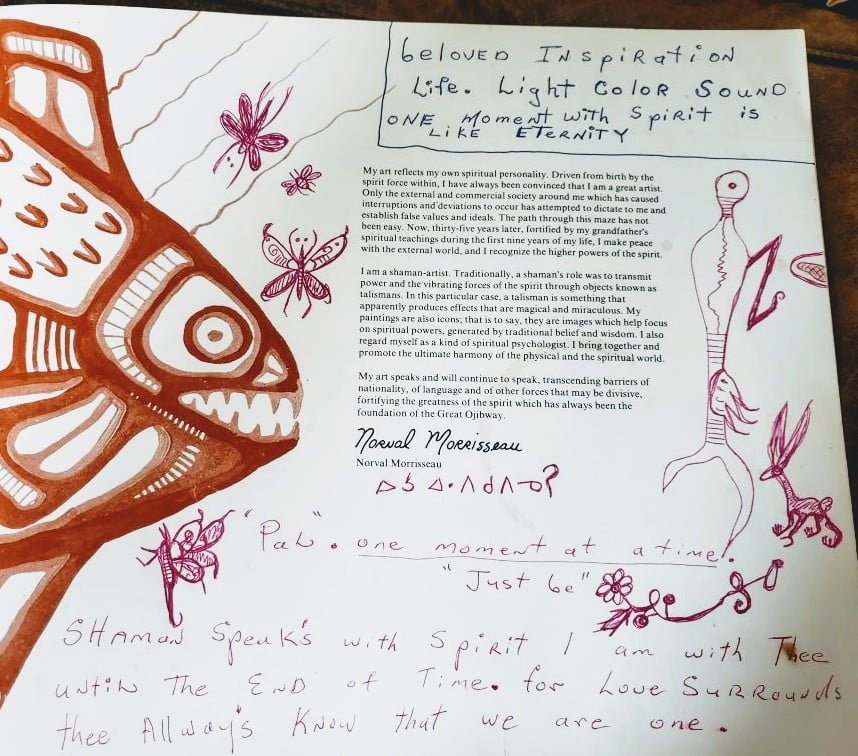 beloved Inspiration
Life. Light Color Sound
One Moment with Spirit is
Like Eternity
My art reflects my own spiritual personality. Driven from birth by the
spirit force within, I have always been convinced that I am a great artist.
Only the external and commercial society around me which has caused
interruptions and deviations to occur has attempted to dictate to me and
establish false values and ideals. The path through this maze has not
been easy. Now, thirty-five years later, fortified by my grandfather's
spiritual teachings during the first nine years of my life, I make peace
with the external world, and I recognize the higher powers of the spirit.
I am a shaman-artist. Traditionally, a shaman's role was to transmit
power and the vibrating forces of the spirit through objects known as
talismans. In this particular case, a talisman is something that
apparently produces effects that are magical and miraculous. My
paintings are also icons; that is to say, they are images which help focus
on spiritual powers, generated by traditional belief and wisdom. I also
regard myself as a kind of spiritual psychologist. I bring together and
promote the ultimate harmony of the physical and the spiritual world.
My art speaks and will continue to speak, transcending barriers of
nationality, of language and of other forces that may be divisive,
fortifying the greatness of the spirit which has always been the
foundation of the Great Ojibway.
Norval Morrisseau
Norval Morrisseau
"Pal". one moment at a time!
"Just be"
Shaman Speak's with Spirit I am with Thee
until The End of Time. for Love Surrounds
thee Allway's Know that we are one.